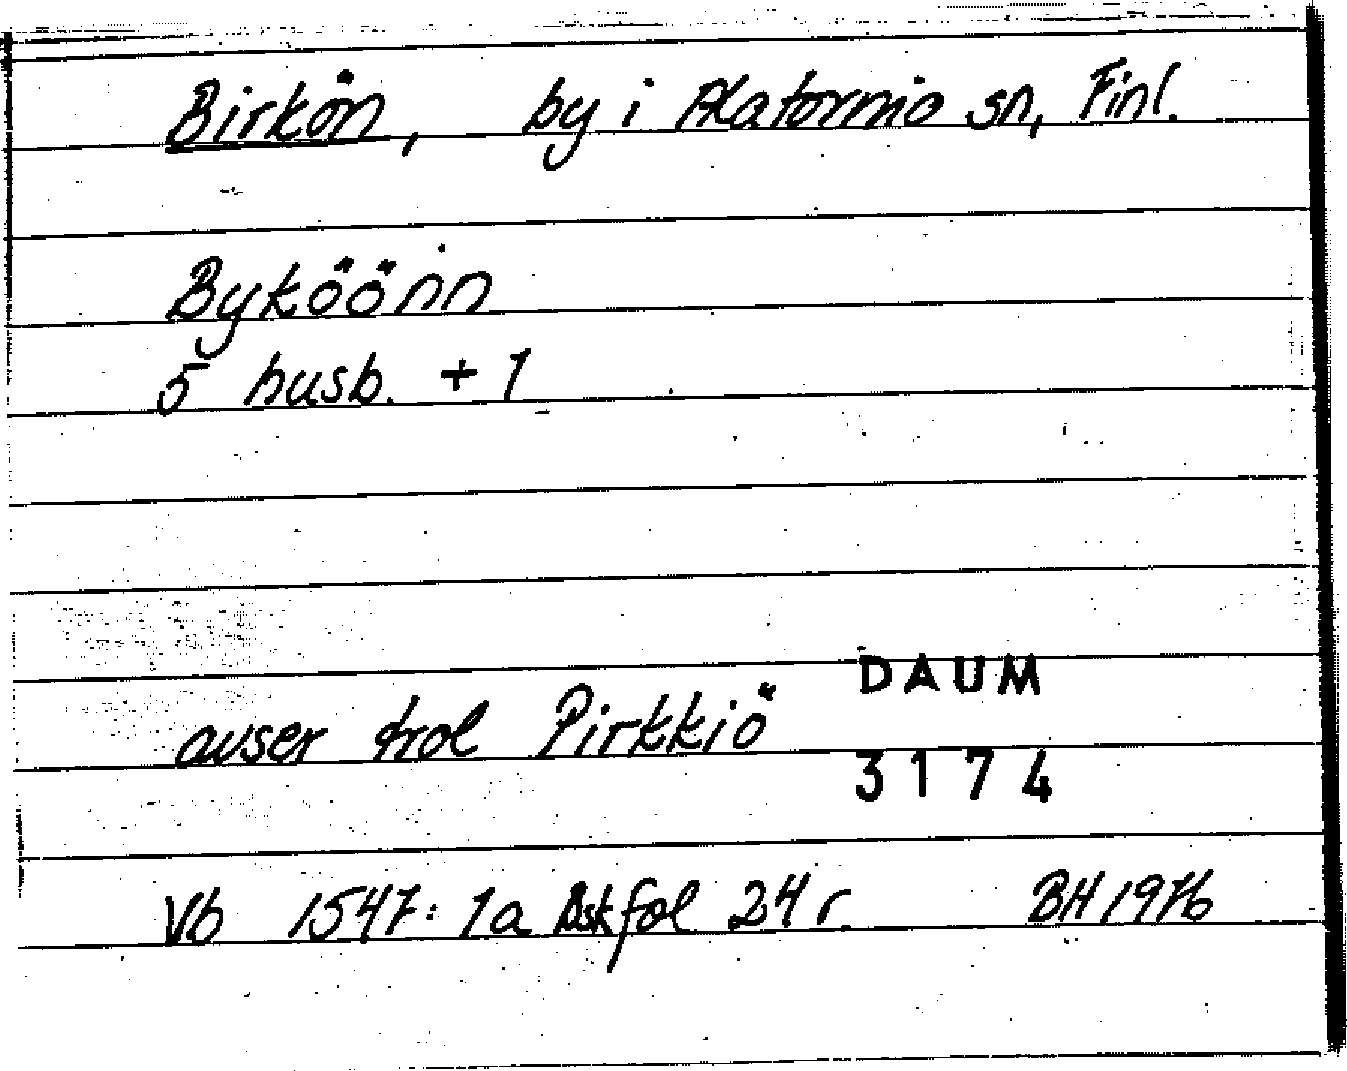 Birkön, by i Alatornio sn, Finl.
Byköönn
5 husb. + 1
DAUM
avser trol Pirkkiö
3174
Vb 1547: 1a fol 24 r. BH 1976